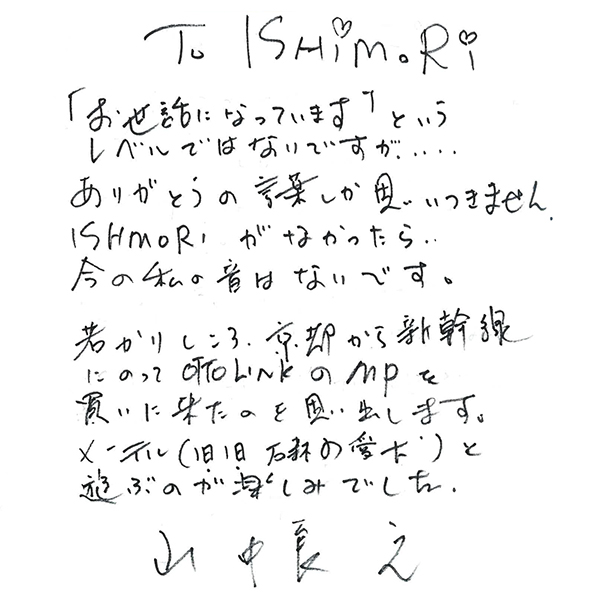 To ISHiMoRi
「お世話になっています」という
レベルではないですが.....
ありがとうの言葉しか思いつきません.
ISHMoRi がなかったら..
今の私の音はないです。
若かりしころ、京都から新幹線
にのって OTTO LiNK の MP を
買いに来たのを思い出します。
メンデル(旧旧石森の愛犬)と
遊ぶのが楽しみでした.
山中良之